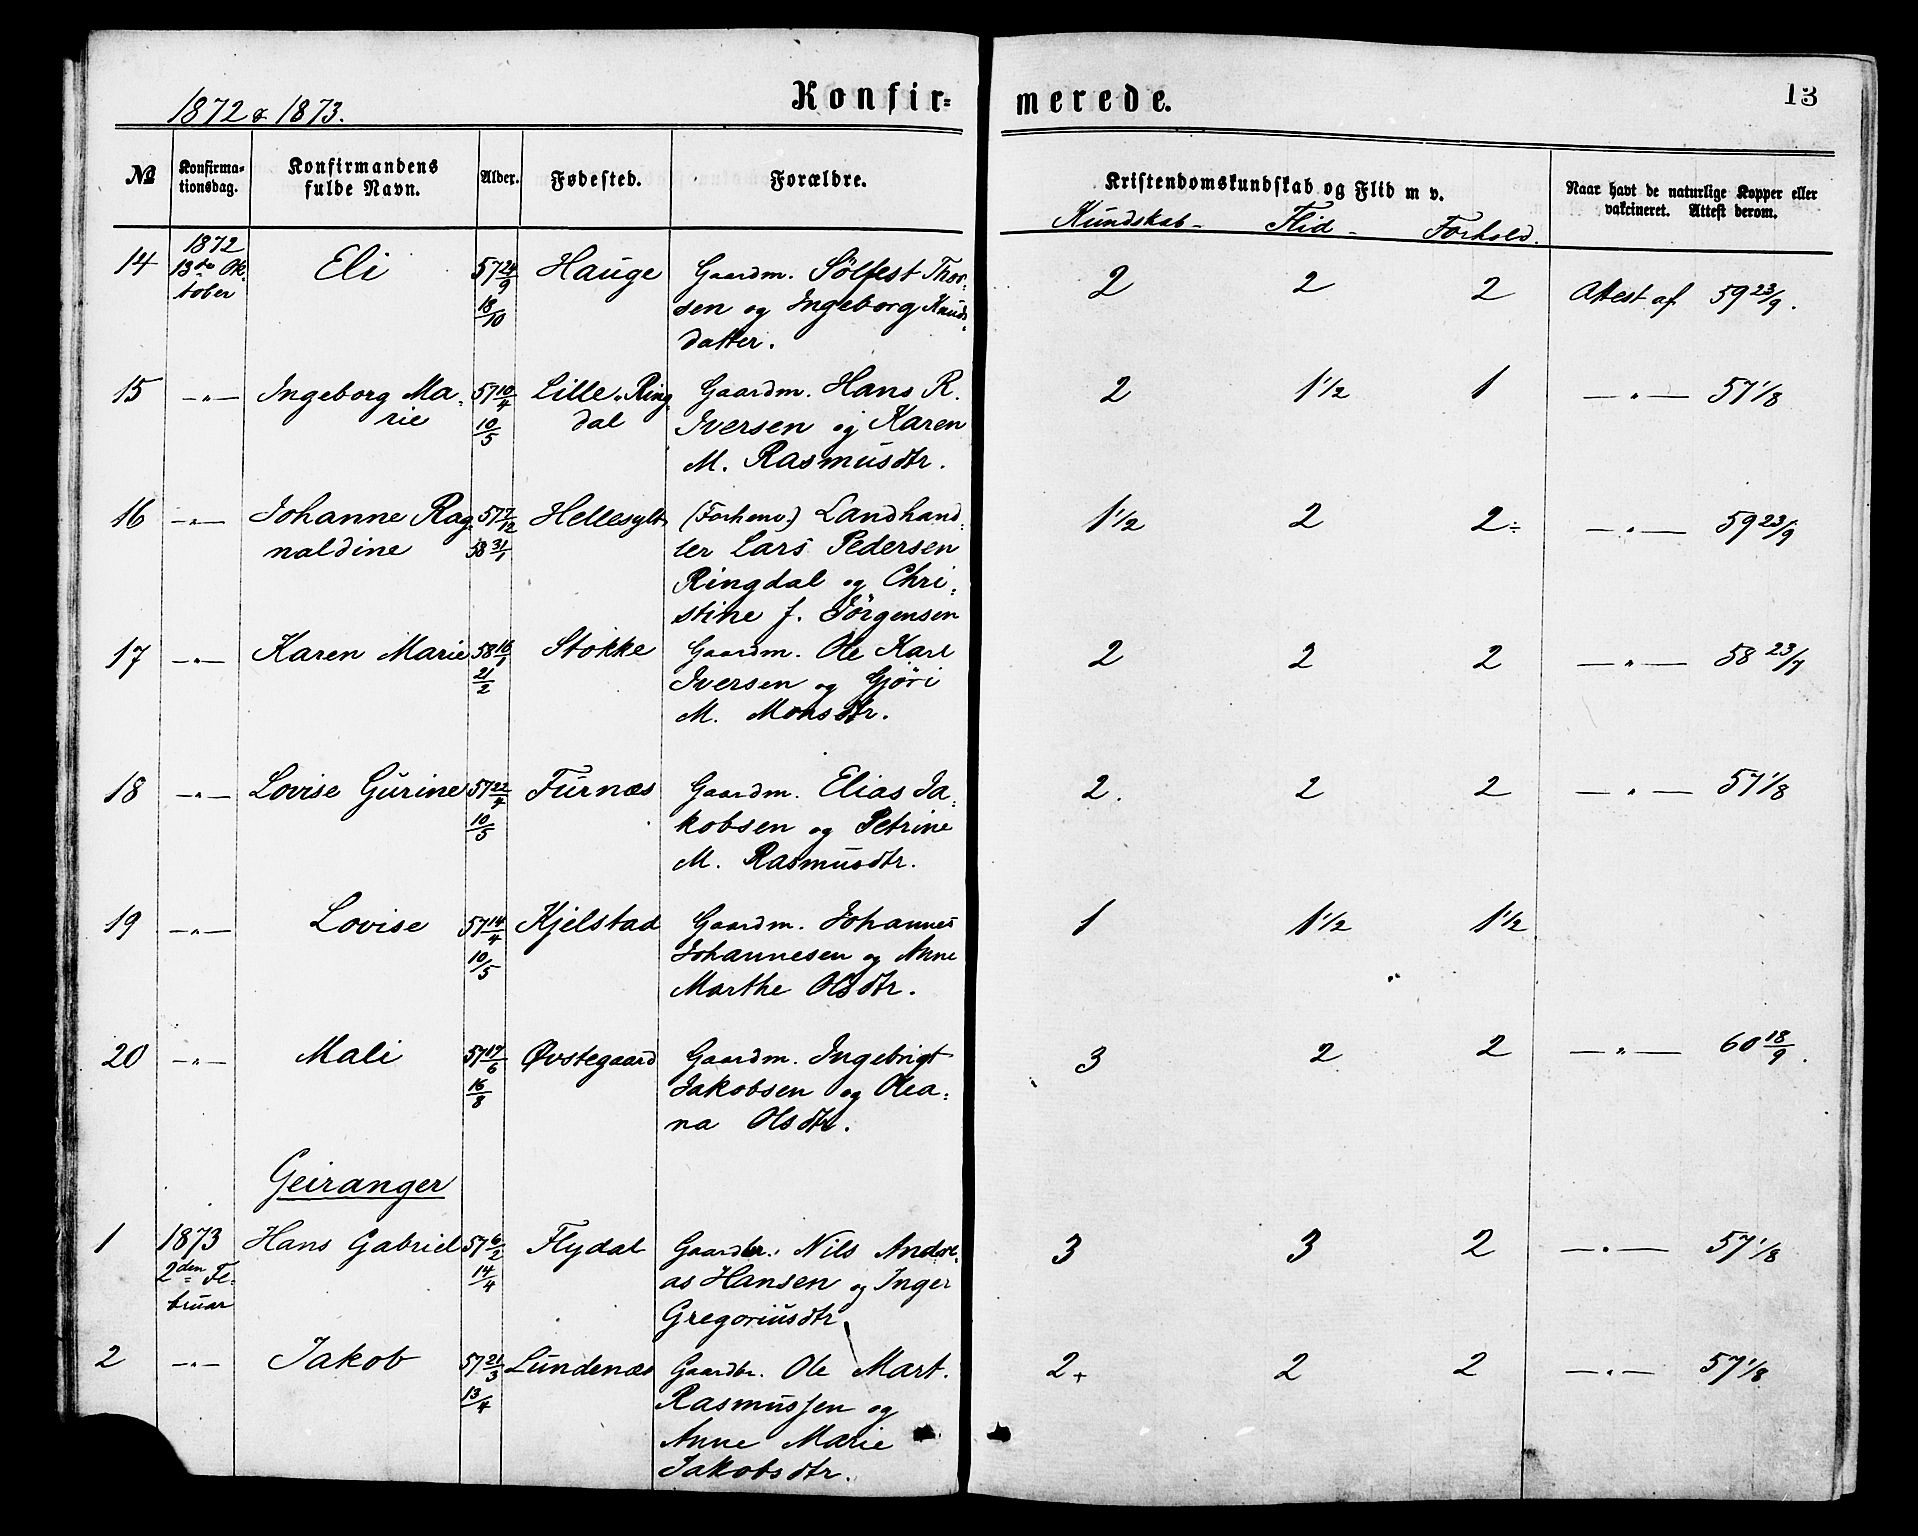 1872 & 1873.
Konfir=
merede.
13
№
Konfirma=
tionsdag.
Konfirmandens
fulde Navn.
Alder.
Fødested.
Forældre.
Kristendomskundskab og Flid m v.
Kundskab - Flid - Forhold.
Naar havt de naturlige Kopper eller
vakcineret. Attest derom.
14 1872 Eli 57 24/9 Hauge Gaardm. Sölfest Thor= 2 2 2 Attest af 59 23/9.
13de Ok
tober
18/10 sen og Ingeborg Knuds=
datter.
15 -"- Ingeborg Ma= 57 10/4 Lille-Ring= Gaardm. Hans R. 2 1 1/2 1 -"- 57 1/8
rie 10/5 dal Iversen og Karen
M. Rasmusdtr.
16 -"- Johanne Rag= 57 7/12 Hellesylt (Forhenv.) Landhand= 1 1/2 2 2÷ -"- 59 23/9
naldine 58 31/1 ler Lars Pedersen
Ringdal og Chri=
stine f. Jörgensen
17 -"- Karen Marie 58 16/1 Stokke Gaardm. Ole Karl 2 2 2 -"- 58 23/7
21/2 Iversen og Gjöri
M. Monsdtr.
18 -"- Lovise Gurine 57 22/4 Furnæs Gaardm. Elias Ja= 2. 2 2 -"- 57 1/8
10/5 kobsen og Petrine
M. Rasmusdtr.
19 -"- Lovise 57 14/4 Kjelstad Gaardm. Johannes 1 1 1/2 1 1/2
10/5 Johannesen og Anne
Marthe Olsdtr.
20 -"- Mali 57 17/6 Øvstegaard Gaardm. Ingebrigt 3 2 2 -"- 60 18/9.
16/8 Jakobsen og Olea=
na Olsdtr.
Geiranger
1 1873 Hans Gabriel 57 6/2 Flydal Gaardbr. Nils Andre= 3 3 2 -"- 57 1/8
2den Fe= 14/4 as Hansen og Inger
bruar Gregoriusdtr.
2 -"- Jakob 57 21/3 Lundenæs Gaardbr. Ole Mart. 2+ 2 2 -"- 57 1/8
13/4 Rasmussen og
Anne Marie
Jakobsdtr.